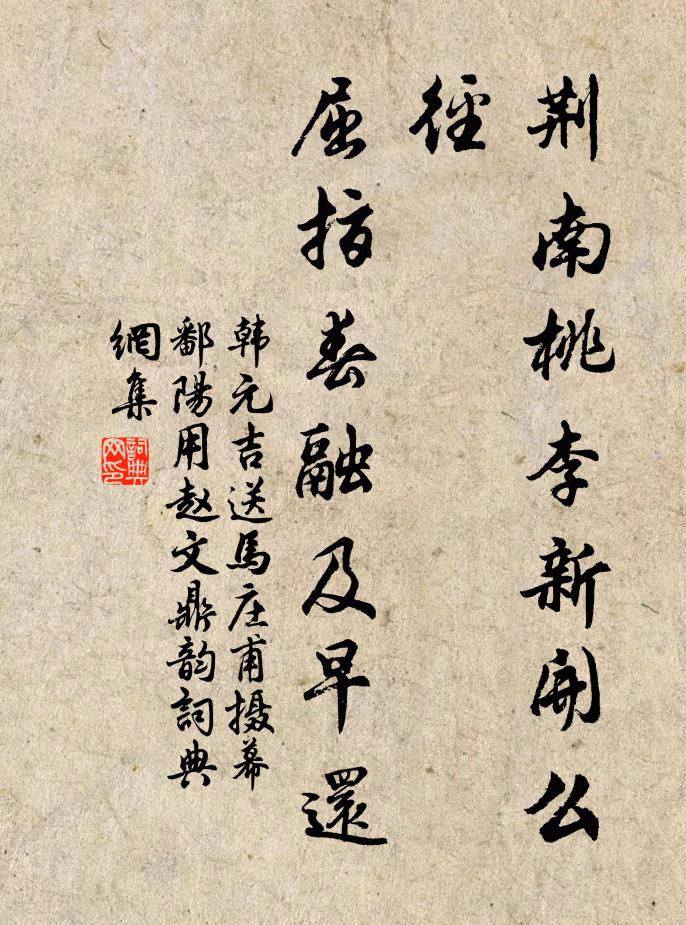 荆南桃李新開公
徑
屈指春融及早還
韩元吉送馬庄甫摄幕
鄱陽用赵文鼎韵詞典
網集
詞典
网印